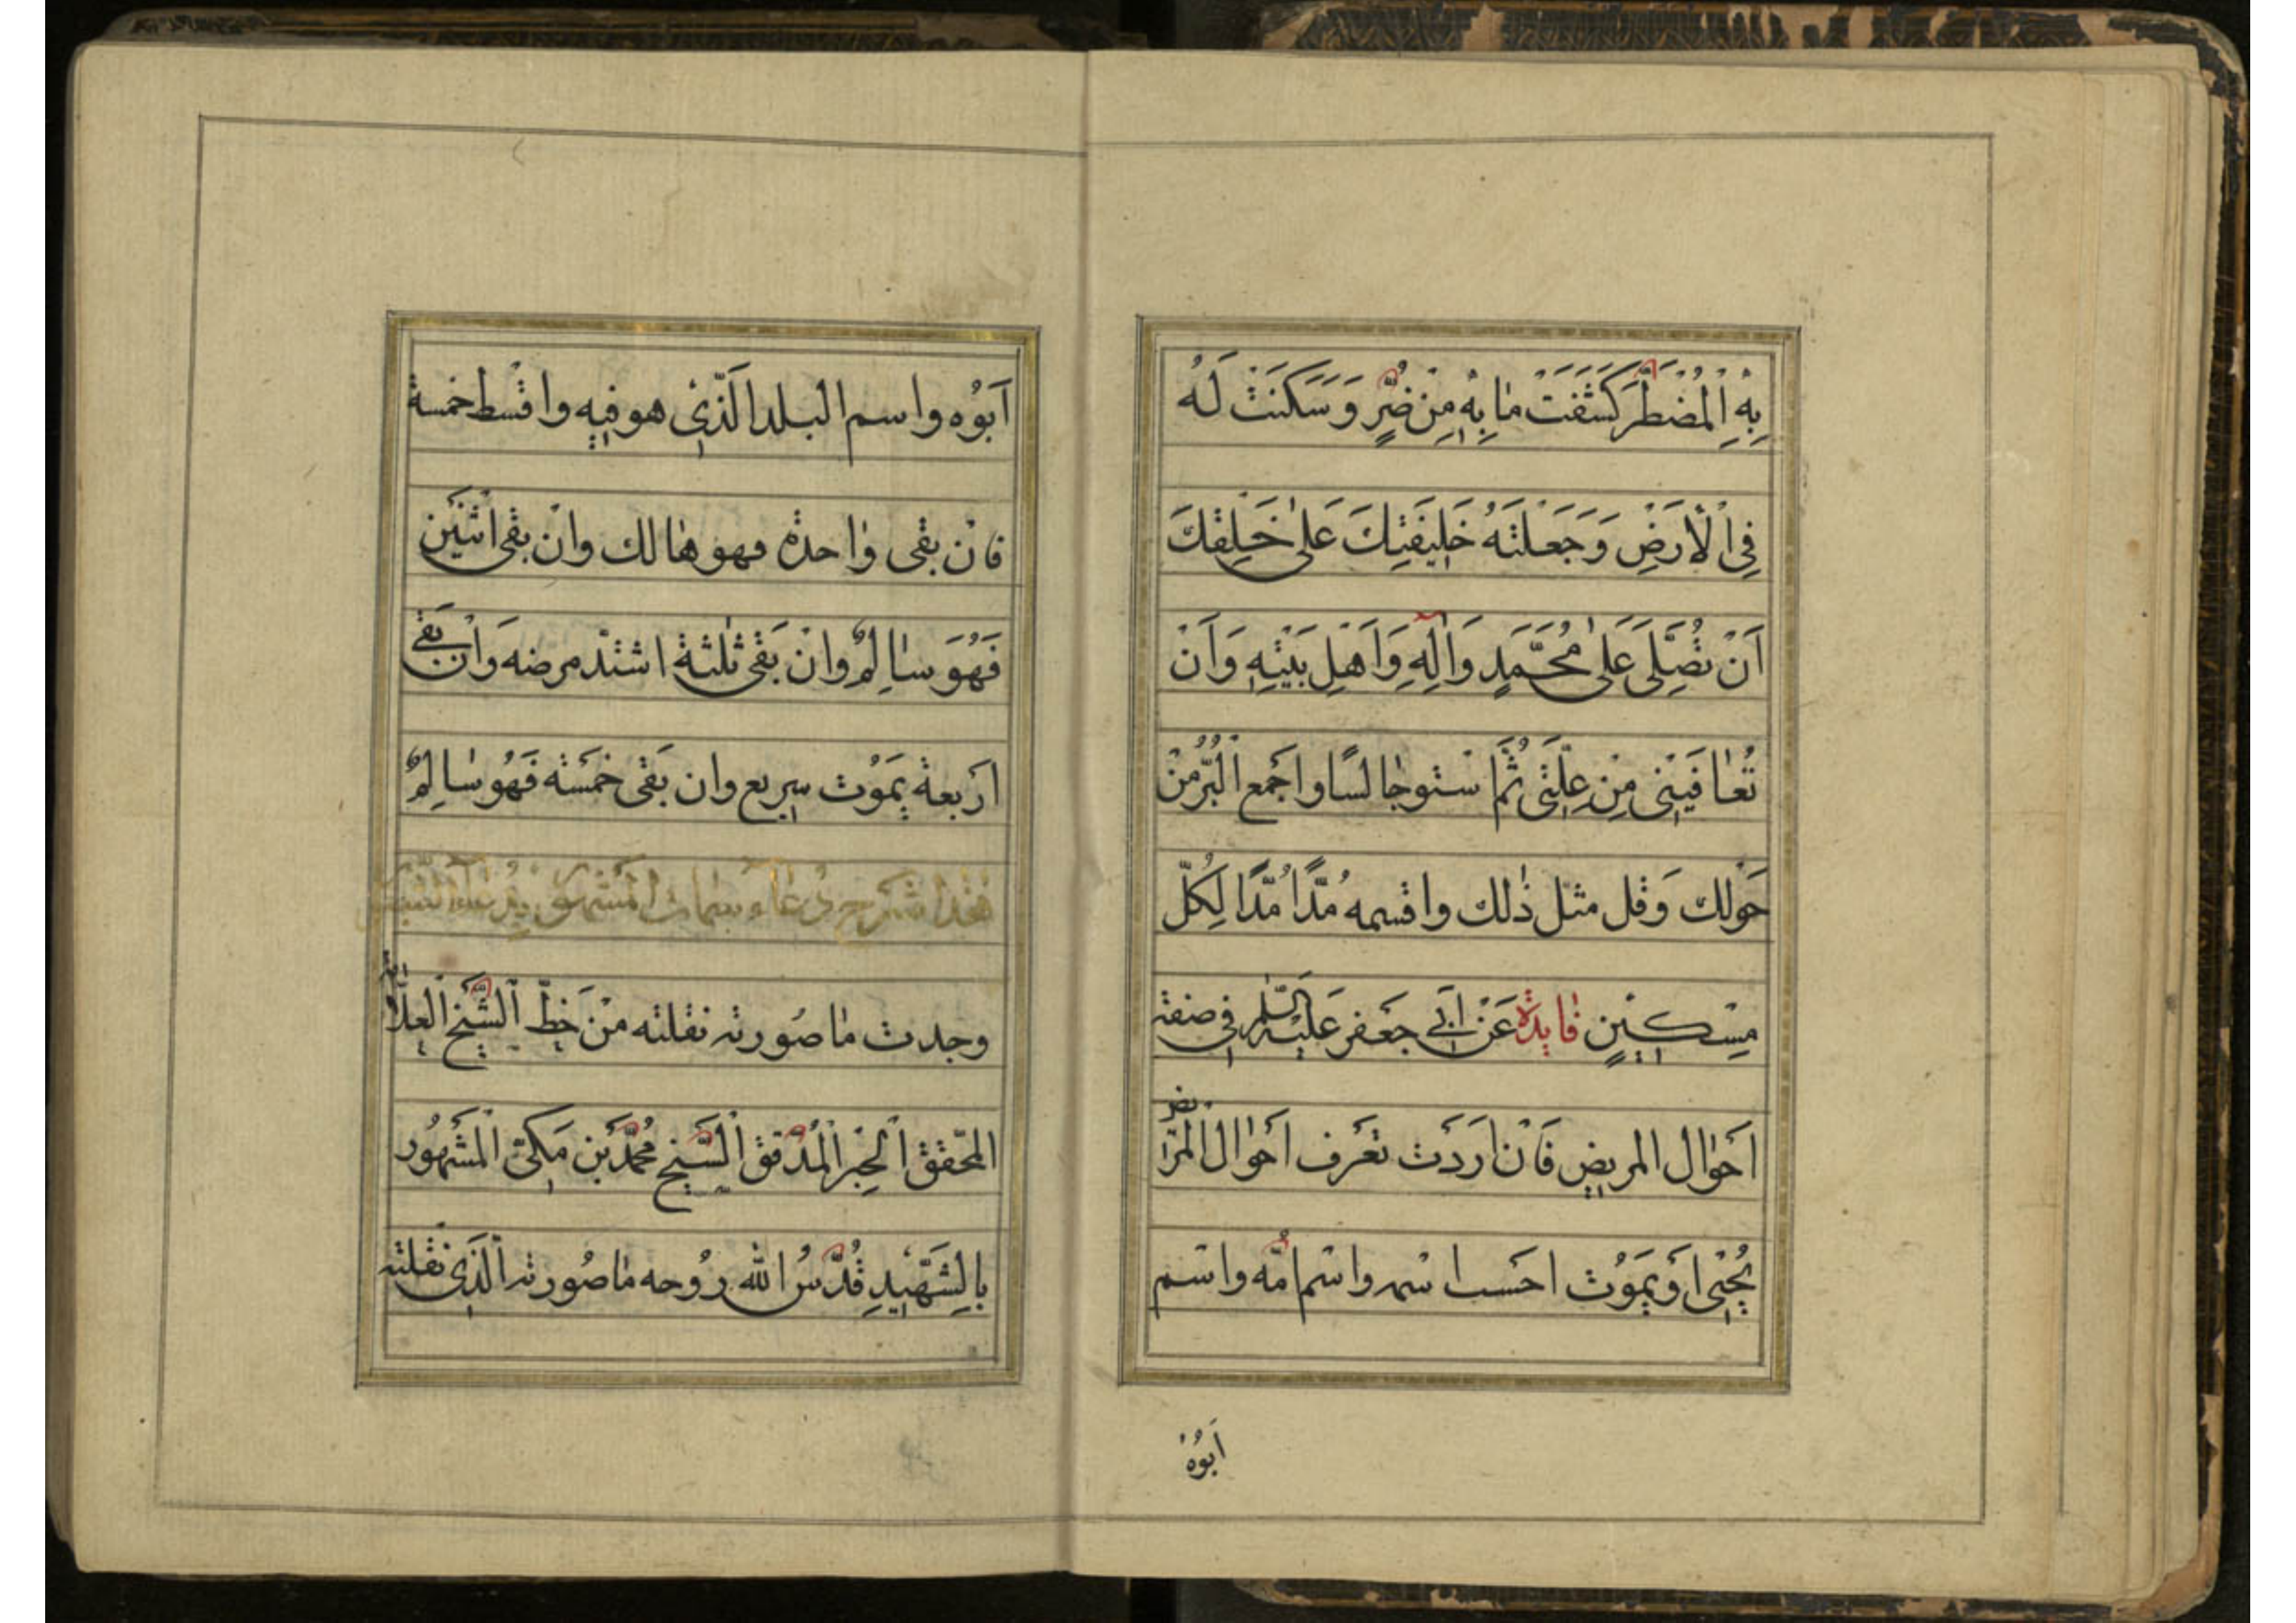 بِهِ اِلْمُضْطَرَّ كَشَفْتَ مٰا بِهِ مِنْ ضُرٍّ وَسَكَنَتْ لَهُ
فِي اْلاَرَضِ وَجَعَلْتَهُ خَلِيفَتِكَ عَلىٰ خَلِقْكَ
اَنْ تُصَلِّيَ عَلىٰ مُحَمَّدٍ وَاٰلِهِ وَاَهْلِ بَيْتِهِ وَاَنْ
تُعٰافَيِنَى مِنْ عِلَّتَى ثُمَّ اسْتوجٰالسًا واجْمع الْبُرَّ مِنْ
حَوْلك وَقل مثل ذٰلك واقسمه مُدًّا مُدًّا لِكُلّ
مِسْكِينٍ فٰايدة عَنْ اَبى جَعفر عَليْه السَّلٰم فى صفة
اَحوٰال المريض فَانْ اَرَدَت تعَرف اَحوٰال الْمرٰيض
يُحْيٰى اَو يَموُت احسب اسمه واسْم اُمّه واسْم
اَبوُهُ
اَبوُه واسم البلد الَذّى هو فيه واقسْط خمسة
فانْ بقى وٰاحدة فهو هٰالك وانْ بقى اثنَيْن
فَهُوَ سٰالِمٌ وانْ بَقى ثلٰثة اشتدّ مرضه وَانْ بقَى
اربَعة يَموُت سريع وان بَقى خمَسة فَهُو سٰالِمٌ
هٰذا شرح دُعٰآء سمات المشهور
وجدت مٰا صُورته نقلته منْ خطّ الشَّيخ العلّامة
المحّقق الحْبِر الْمُدّقق الشَّيخ مُحَمَّد بَن مَكىّ الْمَشهُور
بالِشَّهِّيدِ قُدَّسُ الله رُوحه مٰا صُورته الَّذى نقلته